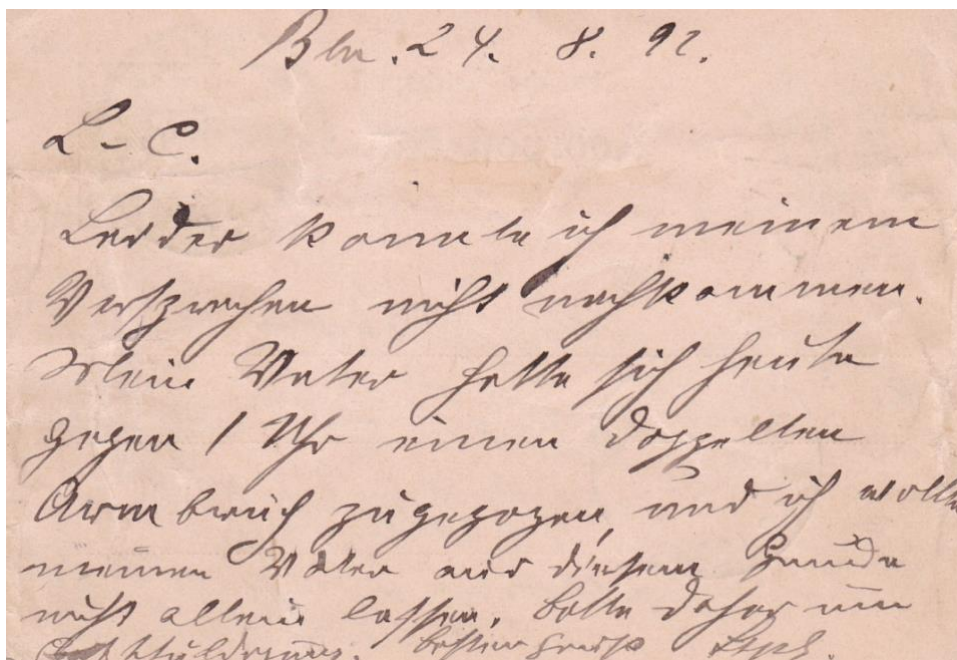 Bln. 24. 8. 92.
L - C.
Leider konnte ich meinem
Versprechen nicht nachkommen.
Mein Vater hatte sich heute
gegen 1 Uhr einen doppelten
Armbruch zugezogen, und ich wollte
meinen Vater aus diesem Grunde
nicht allein lassen. Bitte daher um
Entschuldigung. Besten Gruß